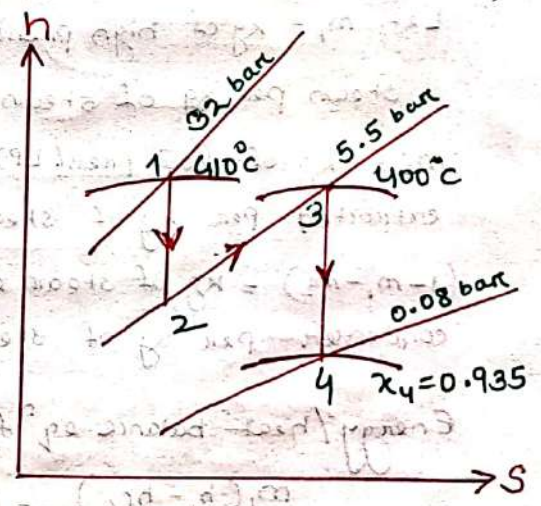 h
32 bar
1 410°C
5.5 bar
400°C
3
2
0.08 bar
4 x₄=0.935
S